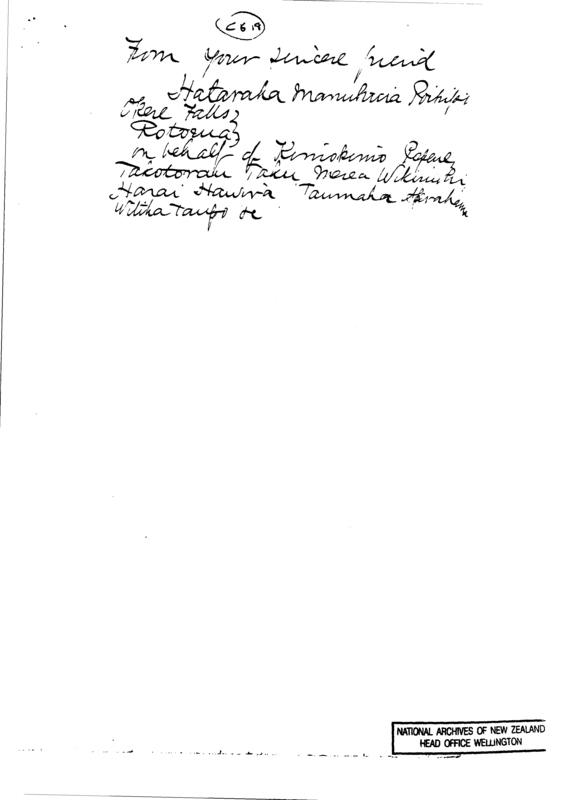 C619
From your sincere friend
Hataraka Manuhuia Poihipi
Okere Falls
Rotorua
on behalf of Komiokomio Papene
Takotorau Taku Merea Wikiriwhi
Harai Hawira Taumaha
Witika Taupo
NATIONAL ARCHIVES OF NEW ZEALAND
HEAD OFFICE WELLINGTON